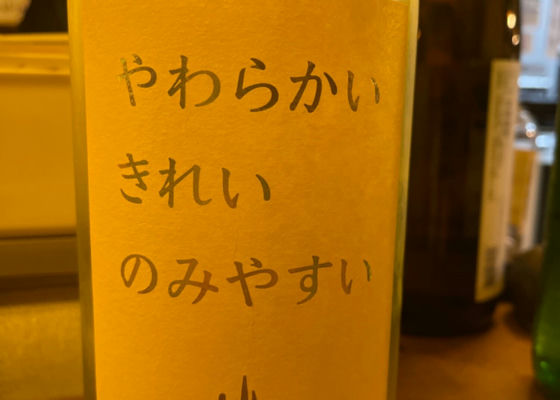 やわらかい
きれい
のみやすい